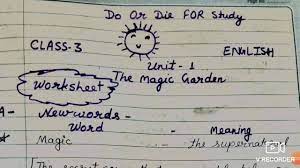 Do Or Die FOR Study
CLASS-3
ENGLISH
Unit-1
Worksheet
The Magic Garden
A- New words -
Word - Meaning
* Magic - the supernatural
V RECORDER